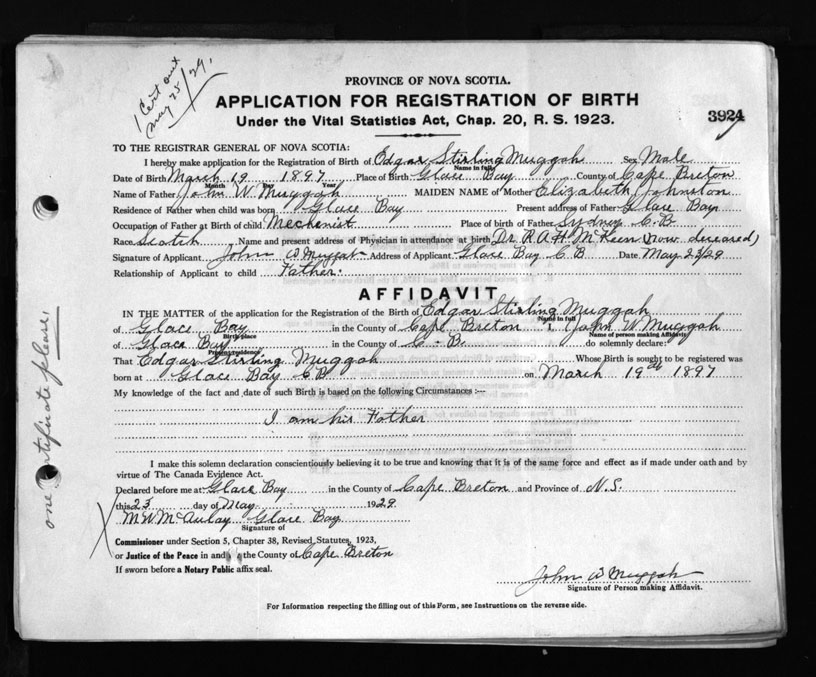 1 Cert out
May 25/29.
PROVINCE OF NOVA SCOTIA.
APPLICATION FOR REGISTRATION OF BIRTH
Under the Vital Statistics Act, Chap. 20, R. S. 1923.
3924
TO THE REGISTRAR GENERAL OF NOVA SCOTIA:
I hereby make application for the Registration of Birth of Edgar Stirling Muggah Sex Male
Name in full
Date of Birth March 19 1897 Place of Birth Glace Bay County of Cape Breton
Month Day Year
Name of Father John W Muggah MAIDEN NAME of Mother Elizabeth Johnston
Residence of Father when child was born Glace Bay Present address of Father Glace Bay
Occupation of Father at Birth of child Mechenist Place of birth of Father Sydney C.B
Race Scotch Name and present address of Physician in attendance at birth Dr R A H McKeen (now deceased)
Signature of Applicant John W Muggah Address of Applicant Glace Bay C B Date May 23/29
Relationship of Applicant to child Father.
AFFIDAVIT
IN THE MATTER of the application for the Registration of the Birth of Edgar Stirling Muggah
Name in full
of Glace Bay in the County of Cape Breton I, John W Muggah
Birth place Name of person making Affidavit
of Glace Bay in the County of C. B. do solemnly declare:
Present residence
That Edgar Stirling Muggah Whose Birth is sought to be registered was
born at Glace Bay C B on March 19th 1897
My knowledge of the fact and date of such Birth is based on the following Circumstances :—
I am his Father
I make this solemn declaration conscientiously believing it to be true and knowing that it is of the same force and effect as if made under oath and by
virtue of The Canada Evidence Act.
Declared before me at Glace Bay in the County of Cape Breton and Province of N.S.
this 23 day of May 1929
M W McAulay Glace Bay
Signature of
Commissioner under Section 5, Chapter 38, Revised Statutes, 1923,
or Justice of the Peace in and the County of Cape Breton
If sworn before a Notary Public affix seal.
John W Muggah
Signature of Person making Affidavit.
For Information respecting the filling out of this Form, see Instructions on the reverse side.
one Certificate please.